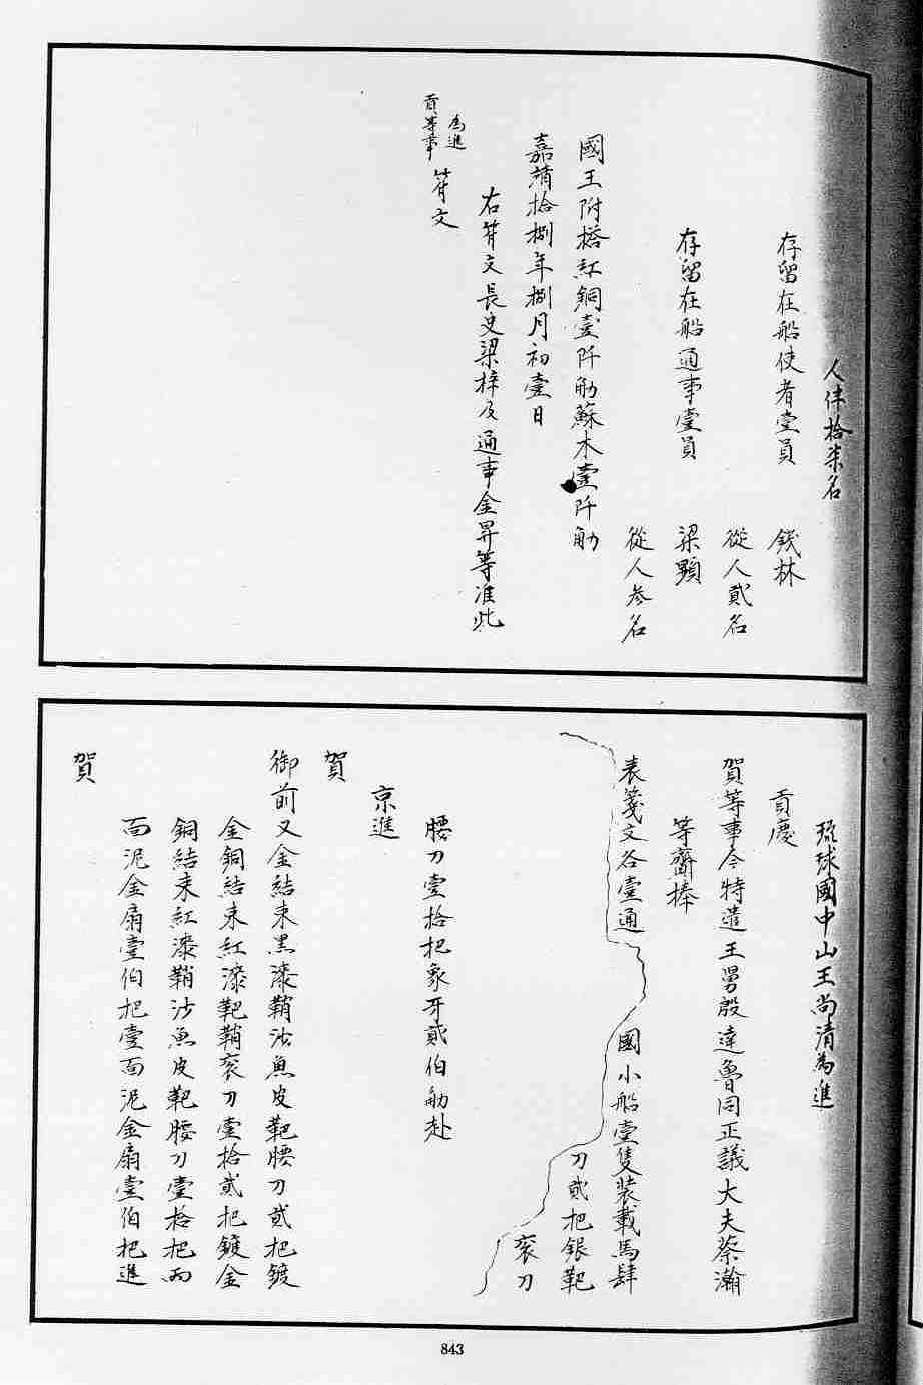 人伴拾柒名
存留在船使者壹員 錢林
從人貳名
存留在船通事壹員 梁顯
從人參名
國王附搭紅銅壹阡觔蘇木壹阡觔
嘉靖拾捌年捌月初壹日
右符文長史梁梓及通事金昇等准此
為進
貢等事 符文
琉球國中山王尚清為進
貢慶
賀等事今特遣王舅殷達魯同正議大夫蔡瀚
等齎捧
表箋文各壹通 國小船壹隻裝載馬肆
刀貳把銀靶
袞刀
腰刀壹拾把象牙貳伯觔赴
京進
賀
御前又金結束黑漆鞘沙魚皮靶腰刀貳把鍍
金銅結束紅漆靶鞘袞刀壹拾貳把鍍金
銅結束紅漆鞘沙魚皮靶腰刀壹拾把兩
面泥金扇壹伯把壹面泥金扇壹伯把進
賀
843